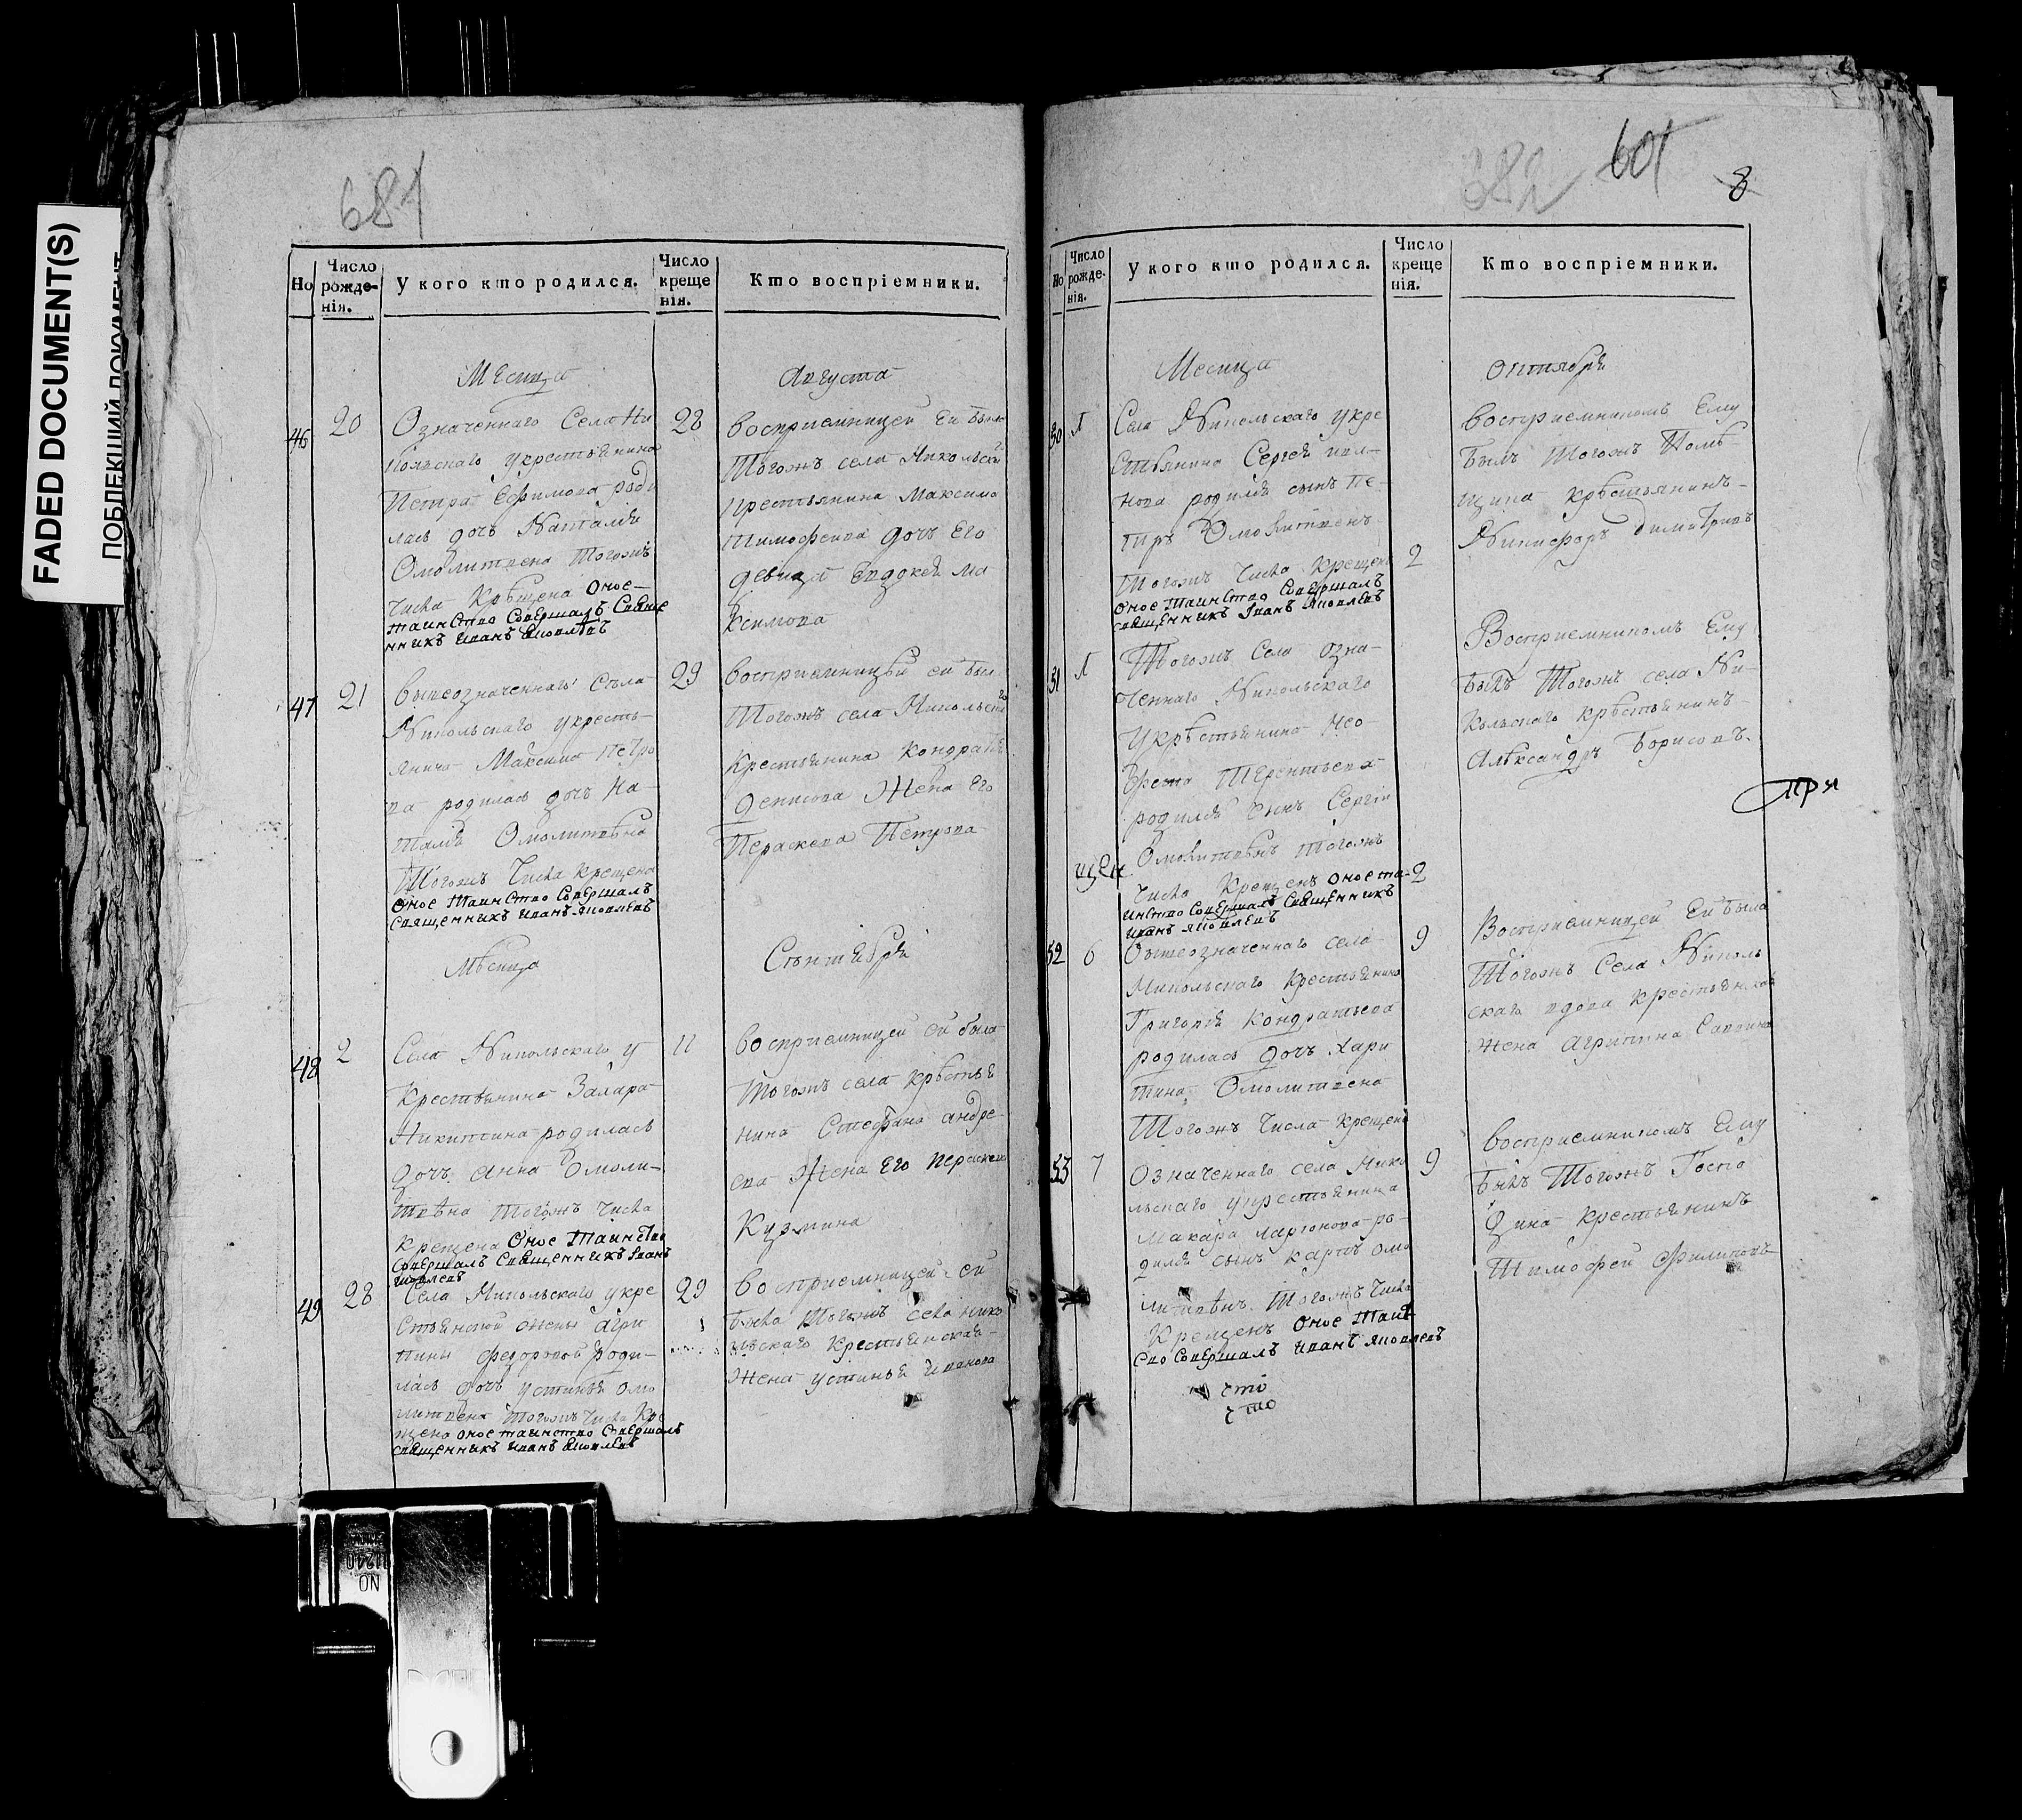 FADED DOCUMENT(S)
ПОБЛЕКШИЙ ДОКУМЕНТ
681
Но
Число рожде-
нія.
У кого кто родился.
Число
креще
нія.
Кто воспріемники.
Месяца
Августа
46
20
Означеннаго Села Ни
кольскаго укрестьянина
Петра Ефимова роди
лась дочь Наталия
Омолитвена Тогожъ
числа Крѣщена Оное
таинство Совершалъ Свяще
нникъ Иванъ Яковлевъ
28
восприемницей Ей была
Тогожъ села Никольска
го
крестьянина Максима
Тимофеива дочь Его
девица Евдокея Ма
ксимова
47
21
вышеозначеннаго Сѣла
Никольскаго укресть-
янина Максима Петро
ва родилась дочь На-
талия Омолитвѣна
Тогожъ Числа Крещена
Оное Таинство Совершалъ
Священникъ Иванъ Яковлевъ
29
восприемницѣй ей был
Тогожъ села Никольска
го
Крестьянина Кондратия
Денисова Жена Его
Пераскева Петрова
Мѣсяца
Сѣнтября
48
2
Села Никольскаго у
Крестьянина Захара
Никитина родилась
дочь Анна Омоли-
твѣна Тогожъ Числа
Крещена Оное Таинство
Совершалъ Священникъ Іванъ
Яковлевъ
11
восприемницей ей была
Тогожъ села крѣстья
нина Стефана андре-
ева Жена Его Пераскева
Кузмина
49
28
Села Никольскаго укре
стьянской жены Агри
пины федоровой роди-
лась дочь устинья омо
литвена Тогожъ Числа Кре
щена оное таинство Совершалъ
священникъ Иванъ Яковлевъ
29
восприемницей ей
Была Тогожъ села нико
льскаго Крестьянская
Жена устинья Иванова
682
601
8
Но
Число
рожде-
нія.
У кого кто родился.
Число
креще
нія.
Кто воспріемники.
Месяца
октября
50
Села Никольскаго укре
стьянина Сергея
родился сынъ Пе-
тръ Омолитвенъ
Тогожъ Числа Крещенъ
Оное таинство Совершалъ
священникъ Іванъ Яковлевъ
2
восприемникомъ Ему
Былъ Тогожъ Помѣ-
щика крѣстьянинъ
Никифоръ Димитриевъ
51
Тогожъ Села Озна-
ченнаго Никольскаго
Укрѣстьянина
Терентьева
родился сынъ Сергіи
Омолитвѣнъ Тогожъ
Числа Крещенъ Оное та-
инство Совершалъ Священникъ
Иванъ Яковлевъ
2
Восприемникомъ Ему
Былъ Тогожъ села Ни-
кольскаго крѣстьянинъ
Алѣксандръ Борисовъ.
при
щен
52
6
Вышеозначеннаго села
Никольскаго Крестьянина
Григорья Кондратьева
родилась дочь Хари
тина Омолитвена
Тогожъ Числа Крещена
9
Восприемницей Ей была
Тогожъ Села Николь
скаго вдова крестьянская
жена Агрипина Саввина
53
7
Означеннаго села Нико
льскаго укрестьянина
Макара Ларионова ро-
дился сынъ Карпъ омо
литвѣнъ Тогожъ Числа
Крещенъ Оное Таин
ство Совершалъ Иванъ Яковлевъ
9
восприемникомъ Ему
Былъ Тогожъ Госпо
дина крестьянинъ
Тимофей Филиповъ
что
что